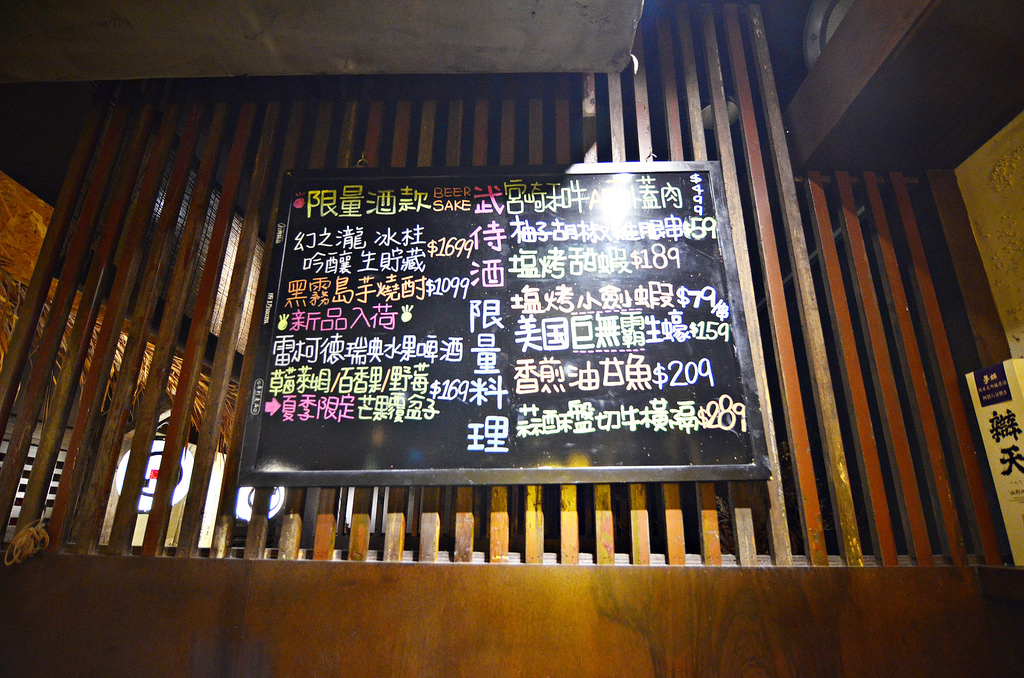 限量酒款 BEER SAKE
幻之瀧 冰柱
吟釀 生貯藏 $1699
黑霧島芋燒酎 $1099
新品入荷
雷柯德瑞典水果啤酒
草莓萊姆/百香果/野莓 $169
夏季限定 芒果覆盆子
武侍酒限量料理
宮崎和牛 蓋肉 $999
柚子胡椒 串 $59
塩烤甜蝦 $189
塩烤小劍蝦 $79/串
美国巨無霸生蠔 $159
香煎油甘魚 $209
蒜酒盤切牛橫膈 $289
辯天